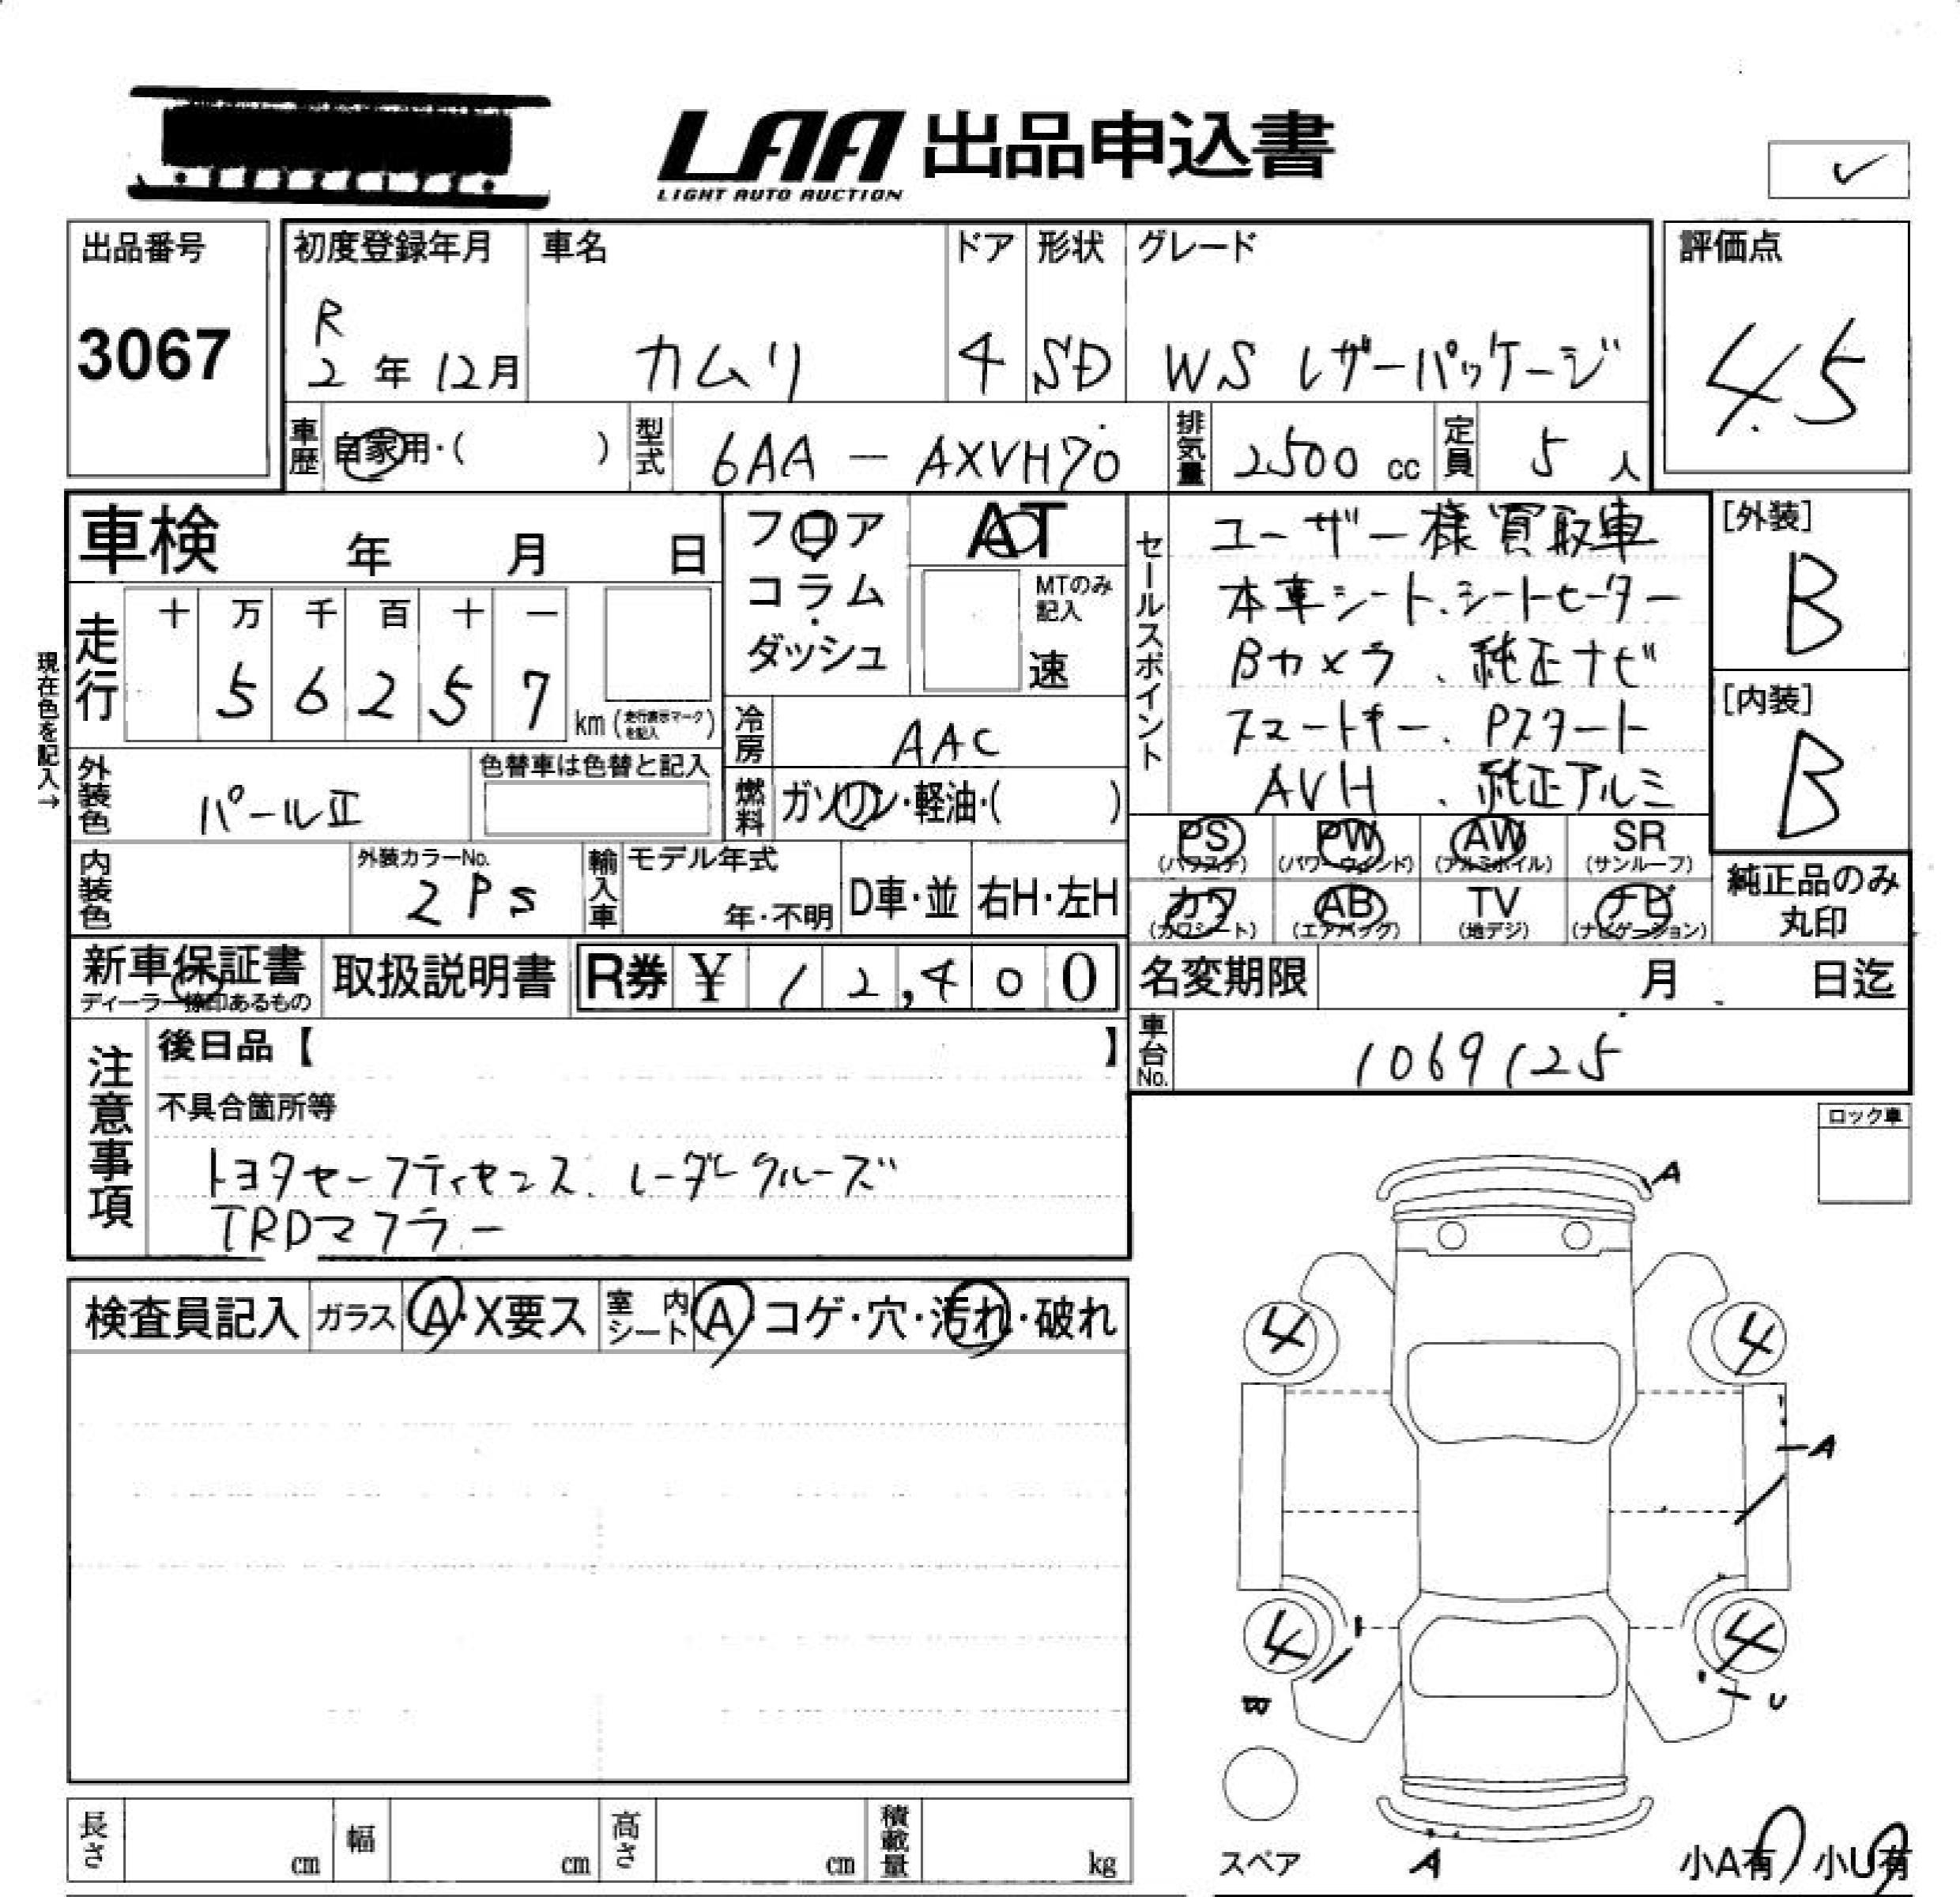 LAA 出品申込書
LIGHT AUTO AUCTION
出品番号
3067
初度登録年月
R
2年12月
車名
カムリ
ドア
4
形状
SD
グレード
WS レザーパッケージ
評価点
4.5
車歴 自家用・( )
型式 6AA-AXVH70
排気量 2500cc
定員 5人
車検 年 月 日
フロア
コラム
・
ダッシュ
AT
MTのみ
記入
速
セールスポイント
ユーザー様買取車
本革シート、シートヒーター
Bカメラ、純正ナビ
スマートキー、Pスタート
AVH、純正アルミ
[外装]
B
[内装]
B
現在色を記入→
走行
十 万 千 百 十 一
5 6 2 5 7
km(走行表示マークを記入)
冷房 AAC
外装色 パールⅡ
色替車は色替と記入
燃料 ガソリン・軽油・( )
PS (パワステ)
PW (パワーウィンド)
AW (アルミホイル)
SR (サンルーフ)
カワ (カワシート)
AB (エアバック)
TV (地デジ)
ナビ (ナビゲーション)
純正品のみ
丸印
内装色
外装カラーNo.
2PS
輸入車
モデル年式
年・不明
D車・並
右H・左H
新車保証書
ディーラー捺印あるもの
取扱説明書
R券 ¥ 12,400
名変期限 月 日迄
車台No. 1069125
注意事項
後日品【 】
不具合箇所等
トヨタセーフティセンス、レーダークルーズ
TRDマフラー
ロック車
検査員記入
ガラス A・X要ス
室内シート A・コゲ・穴・汚れ・破れ
A
4 4
A
4 4
U
スペア
A
小A有 小U有
長さ cm
幅 cm
高さ cm
積載量 kg